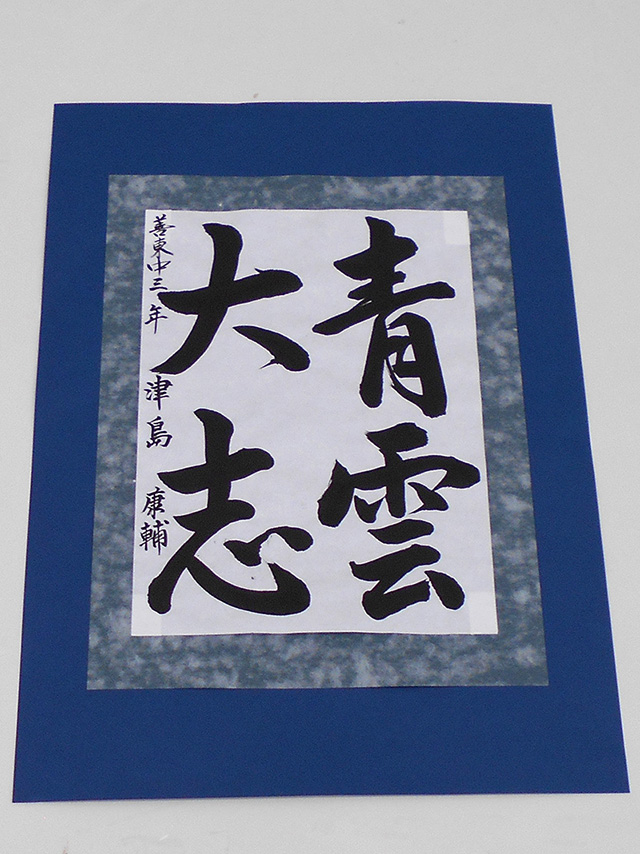 青雲
大志
善東中三年 津島康輔